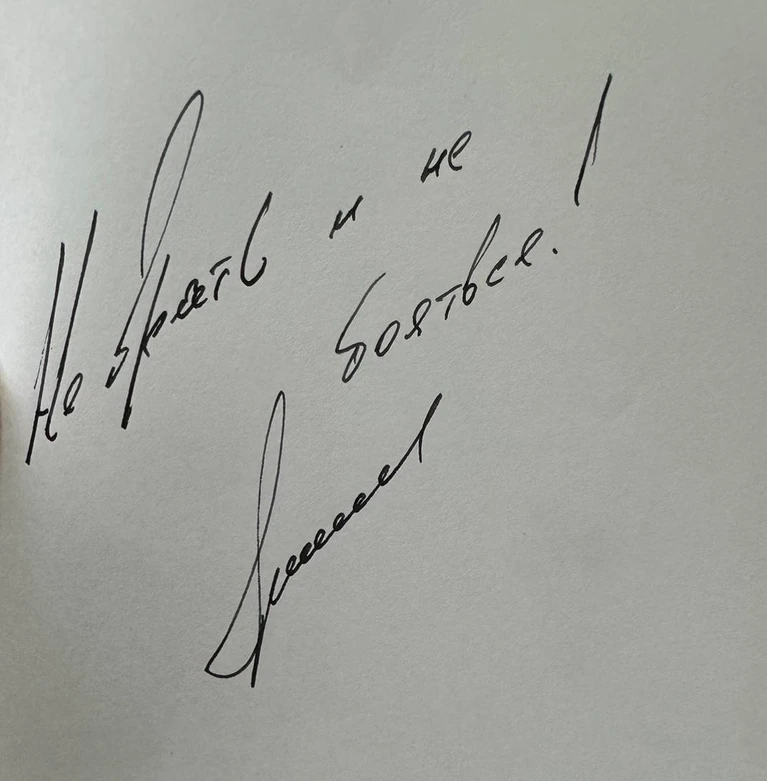 Не врать и не
бояться!